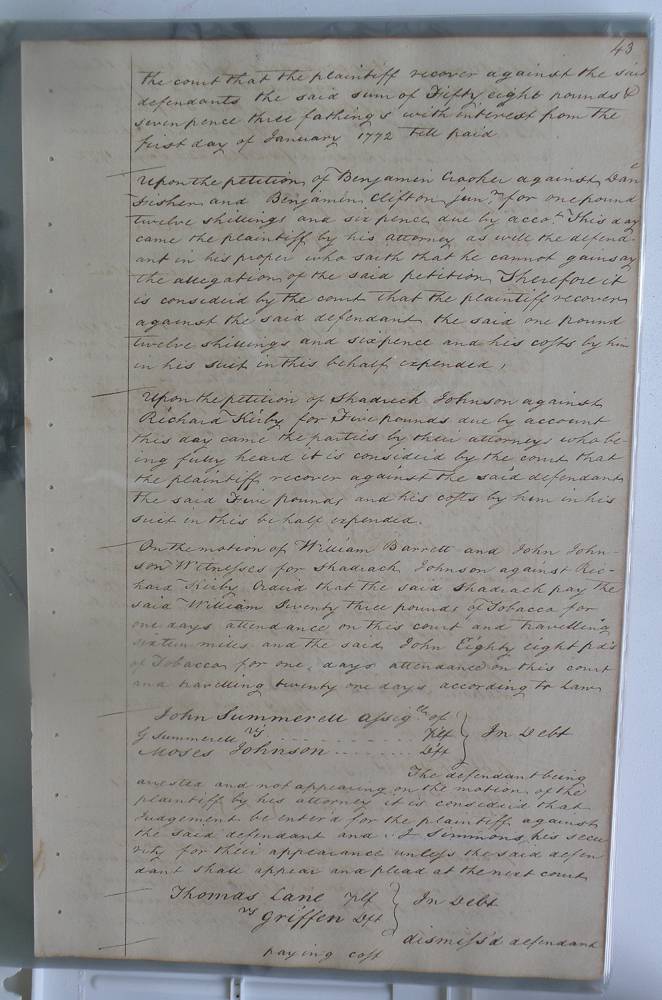 43
the court that the plaintiff recover against the said
defendants the said sum of Fifty eight pounds &
seven pence three fathings with interest from the
first day of January 1772 till paid
Upon the petition of Benjamin Crooker against Danl
Fisher and Benjamin Clifton junr for one pound
twelve shillings and six pence due by accot This day
came the plaintiff by his attorney as well the defend-
ant in his proper who saith that he cannot gainsay
the allegation of the said petition Therefore it
is considerd by the court that the plaintiff recover
against the said defendant the said one pound
twelve shillings and sixpence and his costs by him
in his suit in this behalf expended,
Upon the petition of Shadrick Johnson against
Richard Kirby for Five pounds due by account
this day came the parties by their attorneys who be-
ing fully heard it is considerd by the court that
the plaintiff recover against the said defendant
the said Five pounds and his costs by him in his
suit in this behalf expended.
On the motion of William Barrett and John John-
son Witnesses for Shadrach Johnson against Ric-
hard Kirby Orderd that the said Shadrach pay the
said William Seventy three pounds of Tobacco for
one days attendance on this court and travelling
sixteen miles and the said John Eighty eight pds
of Tobacco for one days attendance on this court
and travelling twenty one days according to Law
John Summerell assig of
G Summerell vs . . . . . . . Plf } In Debt
Moses Johnson . . . . . . . Dft
The defendant being
arested and not appearing on the motion of the
plaintiff by his attorney it is considerd that
Judgement be enterd for the plaintiff against
the said defendant and J Simmons his secu
rity for their appearance unless the said defen
dant shall appear and plead at the next court
Thomas Lane Plf } In Debt
vs Griffen Dft
dismiss'd defendant
paying cost